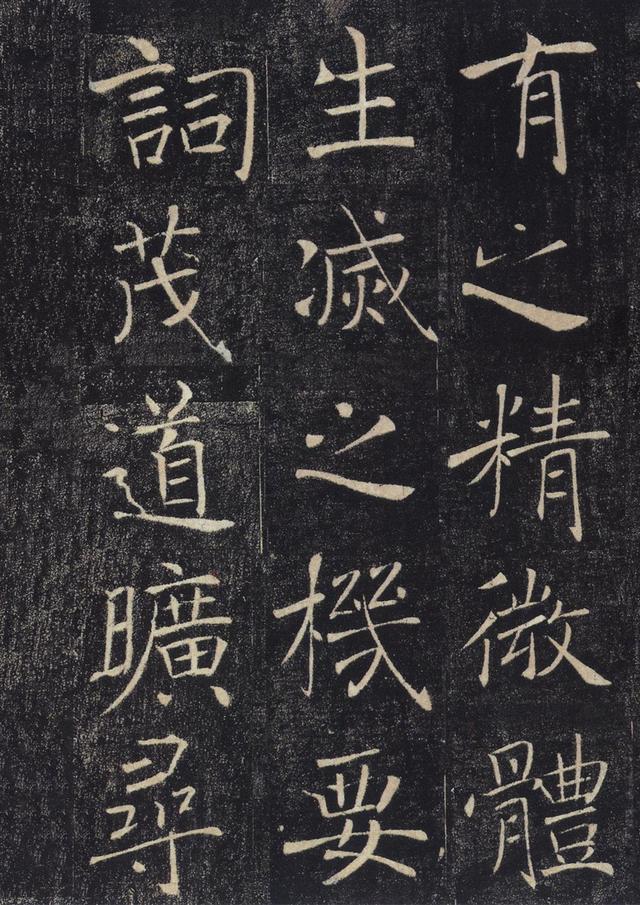 有之精微體
生滅之機要
詞茂道曠尋